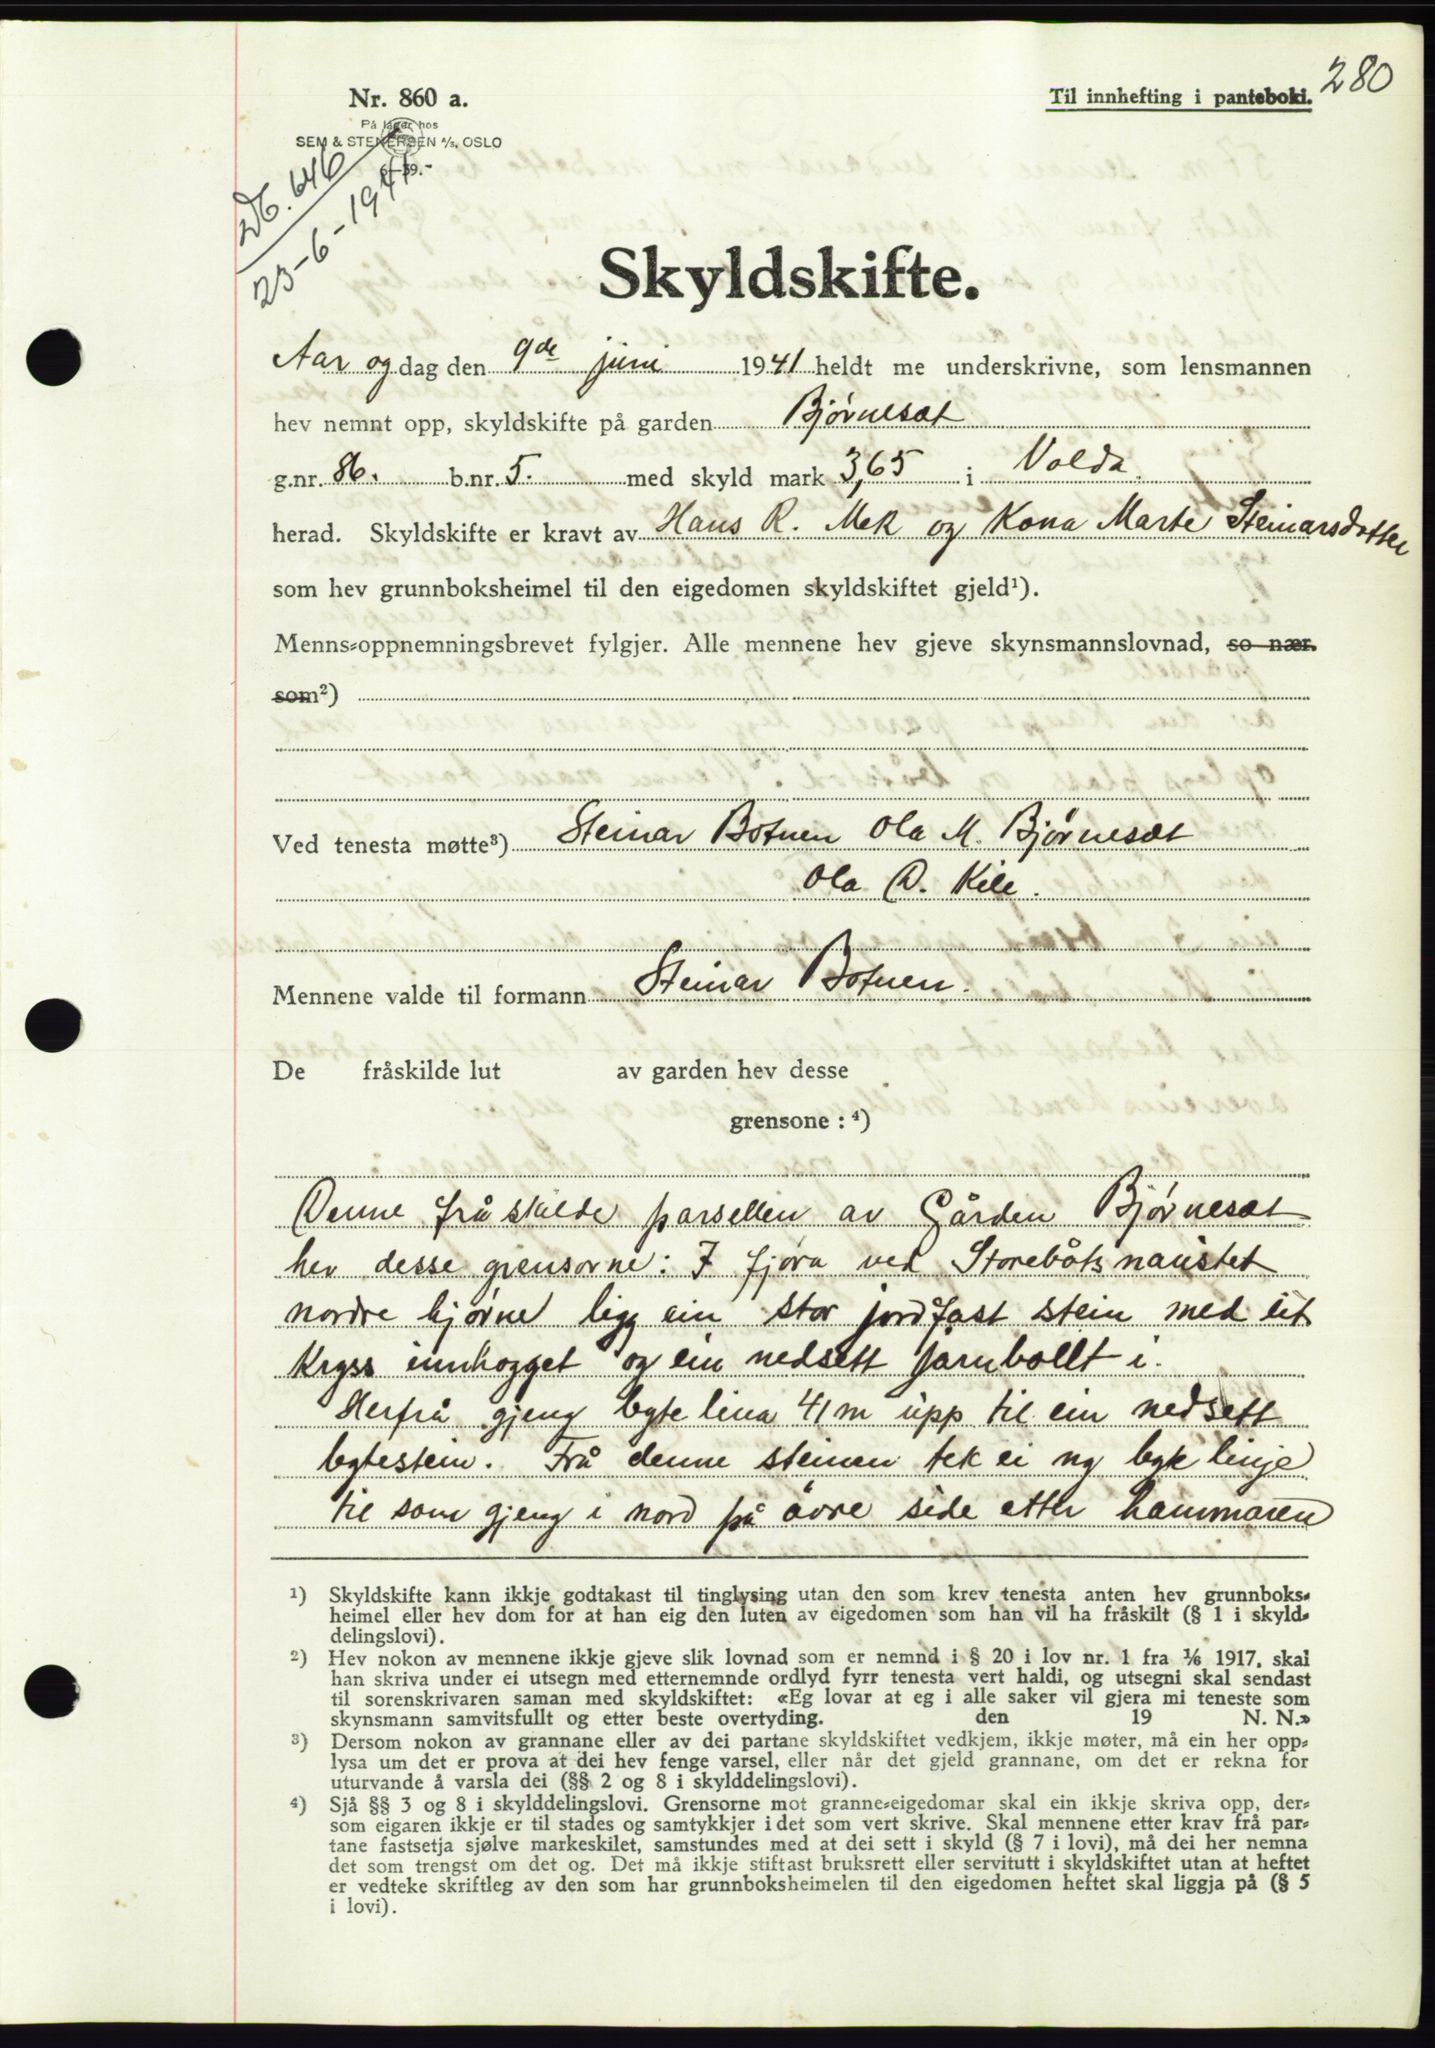 280
Nr. 860 a.
Til innhefting i panteboki.
På lager hos
SEM & STENERSEN A/S, OSLO
6-39.-
Db. 646
23-6-1941
Skyldskifte.
Aar og dag den 9de juni 1941 heldt me underskrivne, som lensmannen
hev nemnt opp, skyldskifte på garden Bjørneset
g.nr. 86. b.nr. 5. med skyld mark 3,65 i Volda.
herad. Skyldskifte er kravt av Hans R. Mek og Kona Marte Steinarsdotter
som hev grunnboksheimel til den eigedomen skyldskiftet gjeld¹).
Menns-oppnemningsbrevet fylgjer. Alle mennene hev gjeve skynsmannslovnad, so nær
som²)
Ved tenesta møtte³) Steinar Botnen Ola M. Bjørneset
Ola D. Kile.
Mennene valde til formann Steinar Botnen.
De fråskilde lut av garden hev desse
grensone : ⁴)
Denne fråskilde parsellen av Gården Bjørneset
hev desse grensorne: I fjøra ved Storebåtsnaustet
nordre hjørne ligg ein stor jordfast stein med eit
Kryss innhogget og ein nedsett jarnbollt i.
Herfrå gjeng bytelina 41 m upp til ein nedsett
bytestein. Frå denne steinen tek ei ny byte linje
til som gjeng i nord på øvre side etter hammaren
¹) Skyldskifte kann ikkje godtakast til tinglysing utan den som krev tenesta anten hev grunnboks-
heimel eller hev dom for at han eig den luten av eigedomen som han vil ha fråskilt (§ 1 i skyld-
delingslovi).
²) Hev nokon av mennene ikkje gjeve slik lovnad som er nemnd i § 20 i lov nr. 1 fra ⅙ 1917, skal
han skriva under ei utsegn med etternemnde ordlyd fyrr tenesta vert haldi, og utsegni skal sendast
til sorenskrivaren saman med skyldskiftet: «Eg lovar at eg i alle saker vil gjera mi teneste som
skynsmann samvitsfullt og etter beste overtyding. den 19 N. N.»
³) Dersom nokon av grannane eller av dei partane skyldskiftet vedkjem, ikkje møter, må ein her opp-
lysa um det er prova at dei hev fenge varsel, eller når det gjeld grannane, om det er rekna for
uturvande å varsla dei (§§ 2 og 8 i skylddelingslovi).
⁴) Sjå §§ 3 og 8 i skylddelingslovi. Grensorne mot granne-eigedomar skal ein ikkje skriva opp, der-
som eigaren ikkje er til stades og samtykkjer i det som vert skrive. Skal mennene etter krav frå par-
tane fastsetja sjølve markeskilet, samstundes med at dei sett i skyld (§ 7 i lovi), må dei her nemna
det som trengst om det og. Det må ikkje stiftast bruksrett eller servitutt i skyldskiftet utan at heftet
er vedteke skriftleg av den som har grunnboksheimelen til den eigedomen heftet skal liggja på (§ 5
i lovi).